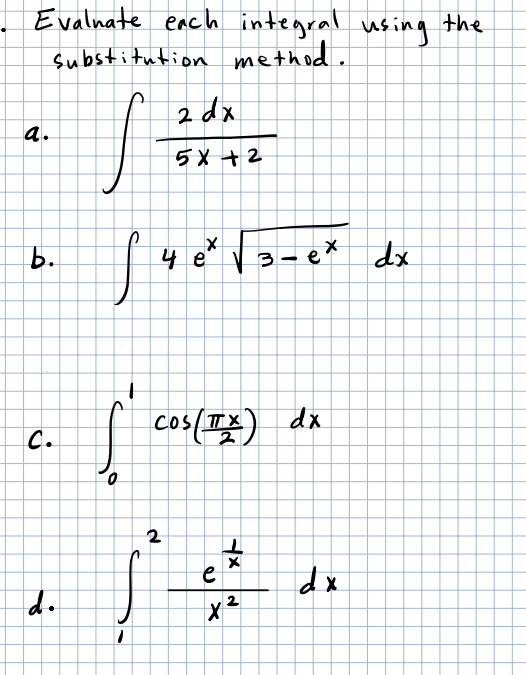 . Evaluate each integral using the
substitution method.
a. ∫ 2 dx / (5x + 2)
b. ∫ 4 e^x √(3 - e^x) dx
c. ∫_0^1 cos(πx/2) dx
d. ∫_1^2 e^(1/x) / x^2 dx